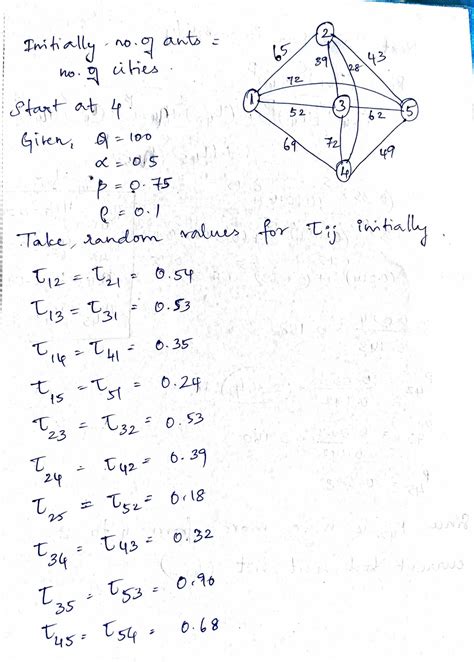 Initially no. of ants =
no. of cities.
Start at 4.
Given, Q = 100
α = 0.5
β = 0.75
ρ = 0.1
65
2
43
39
28
72
1
52
3
62
5
69
72
4
49
Take, random values for τij initially.
τ12 = τ21 = 0.54
τ13 = τ31 = 0.53
τ14 = τ41 = 0.35
τ15 = τ51 = 0.24
τ23 = τ32 = 0.53
τ24 = τ42 = 0.39
τ25 = τ52 = 0.18
τ34 = τ43 = 0.32
τ35 = τ53 = 0.90
τ45 = τ54 = 0.68